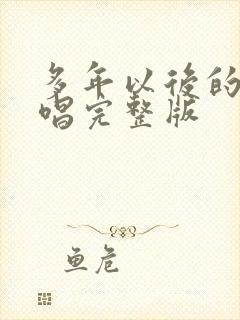 多年以後的
唱完整版
鱼危